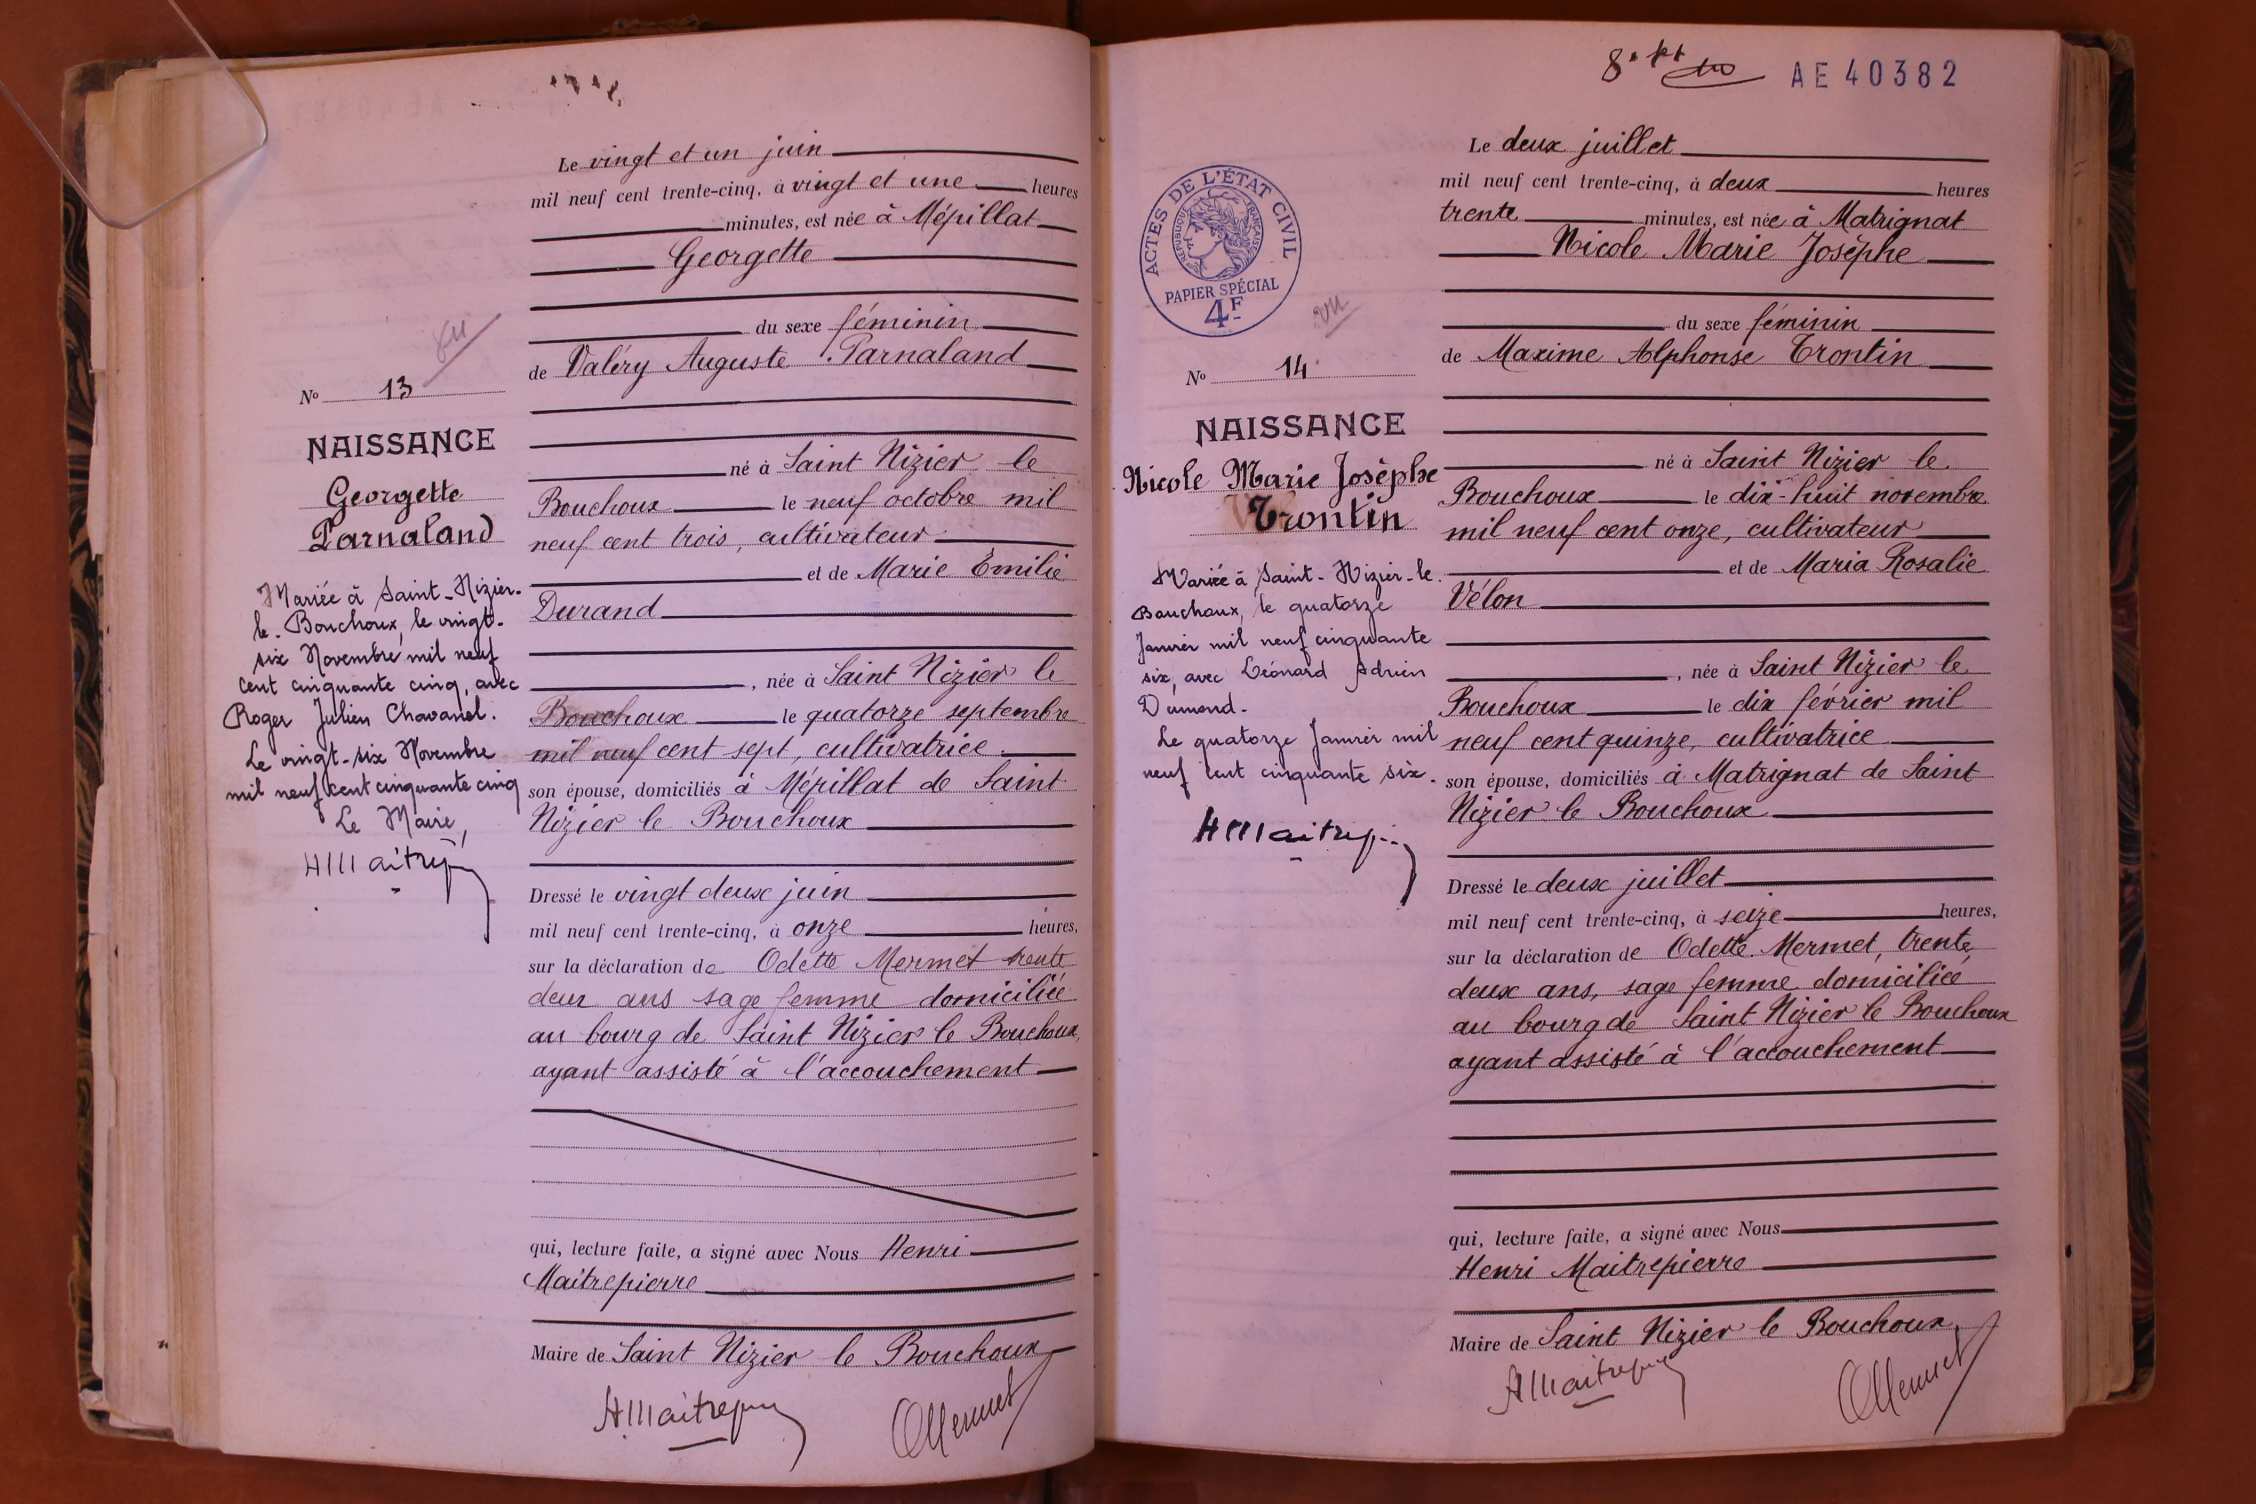 Le vingt et un juin
mil neuf cent trente-cinq, à vingt et une heures
minutes, est née à Mépillat
Georgette
du sexe féminin
de Valéry Auguste Parnaland
né à Saint Nizier le
Bouchoux le neuf octobre mil
neuf cent trois, cultivateur
et de Marie Émilie
Durand
, née à Saint Nizier le
Bouchoux le quatorze septembre
mil neuf cent sept, cultivatrice
son épouse, domiciliés à Mépillat de Saint
Nizier le Bouchoux
Dressé le vingt deux juin
mil neuf cent trente-cinq, à onze heures,
sur la déclaration de Odette Mermet trente
deux ans sage femme domiciliée
au bourg de Saint Nizier le Bouchoux,
ayant assisté à l'accouchement
qui, lecture faite, a signé avec Nous Henri
Maitrepierre
Maire de Saint Nizier le Bouchoux
HMaitrepierre OMermet
vu
No 13
NAISSANCE
Georgette
Parnaland
Mariée à Saint-Nizier-
le-Bouchoux, le vingt-
six Novembre mil neuf
cent cinquante cinq, avec
Roger Julien Chavanel.
Le vingt-six Novembre
mil neuf cent cinquante cinq
Le Maire,
HMaitrep
AE 40382
Le deux juillet
mil neuf cent trente-cinq, à deux heures
trente minutes, est née à Matrignat
Nicole Marie Josèphe
du sexe féminin
de Maxime Alphonse Trontin
né à Saint Nizier le
Bouchoux le dix-huit novembre
mil neuf cent onze, cultivateur
et de Maria Rosalie
Vélon
, née à Saint Nizier le
Bouchoux le dix février mil
neuf cent quinze, cultivatrice
son épouse, domiciliés à Matrignat de Saint
Nizier le Bouchoux
Dressé le deux juillet
mil neuf cent trente-cinq, à seize heures,
sur la déclaration de Odette Mermet, trente
deux ans, sage femme domiciliée
au bourg de Saint Nizier le Bouchoux
ayant assisté à l'accouchement
qui, lecture faite, a signé avec Nous
Henri Maitrepierre
Maire de Saint Nizier le Bouchoux
HMaitrepierre OMermet
ACTES DE L'ÉTAT CIVIL
RÉPUBLIQUE FRANÇAISE
PAPIER SPÉCIAL
4F
vu
No 14
NAISSANCE
Nicole Marie Josèphe
Trontin
Mariée à Saint-Nizier-le-
Bouchoux, le quatorze
Janvier mil neuf cinquante
six, avec Léonard Adrien
Dumond.
Le quatorze Janvier mil
neuf cent cinquante six.
HMaitrep